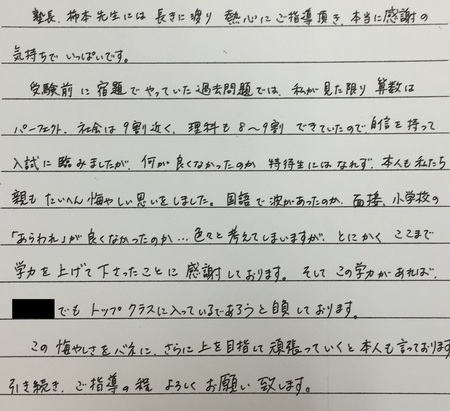 塾長、柿本先生には長きに渡り熱心にご指導頂き、本当に感謝の
気持ちでいっぱいです。
受験前に宿題でやっていた過去問題では、私が見た限り算数は
パーフェクト、社会は9割近く、理科も8〜9割できていたので、自信を持って
入試に臨みましたが、何が良くなかったのか特待生にはなれず、本人も私たち
親もたいへん悔やしい思いをしました。国語で波があったのか、面接、小学校の
「あらわれ」が良くなかったのか…色々と考えてしまいますが、とにかくここまで
学力を上げて下さったことに感謝しております。そしてこの学力があれば、
でもトップクラスに入っているであろうと自負しております。
この悔やしさをバネに、さらに上を目指して頑張っていくと本人も言っております
引き続き、ご指導の程よろしくお願い致します。